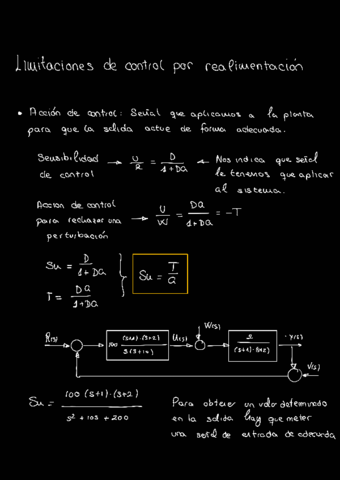 Limitaciones de control por realimentación
• Acción de control: Señal que aplicamos a la planta
para que la salida actue de forma adecuada.
Sensibilidad de control → U/R = D/(1+DG) ← Nos indica que señal
le tenemos que aplicar
al sistema.
Accion de control
para rechazar una
perturbación → U/W = DG/(1+DG) = -T
Su = D/(1+DG)
T = DG/(1+DG)
Su = T/G
R(s) 100 (s+1)·(s+2)/s(s+10) U(s) W(s) Y(s)
V(s)
Su = 100 (s+1)·(s+2)/(s² + 10s + 200)
Para obtener un valor determinado
en la salida hay que meter
una señal de entrada de adecuada